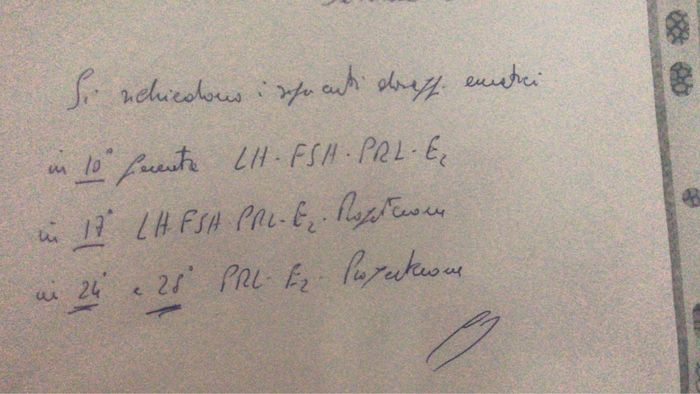 Si richiedono i seguenti dosagg. ematici
in 10° giornata LH - FSH - PRL - E2
in 17° LH FSH PRL - E2 - Progesterone
in 24° e 28° PRL - E2 - Progesterone